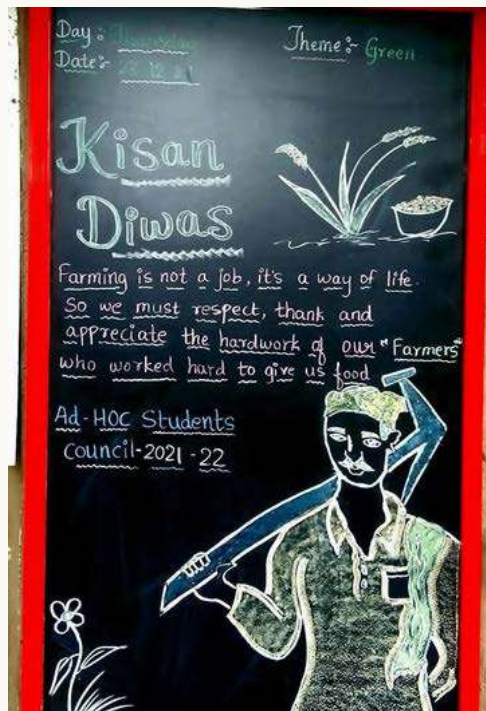 Day : Thursday
Theme :- Green
Date :- 23 12 21
Kisan
Diwas
Farming is not a job, it's a way of life.
So we must respect, thank and
appreciate the hardwork of our "Farmers"
who worked hard to give us food
Ad-HOC Students
Council-2021-22